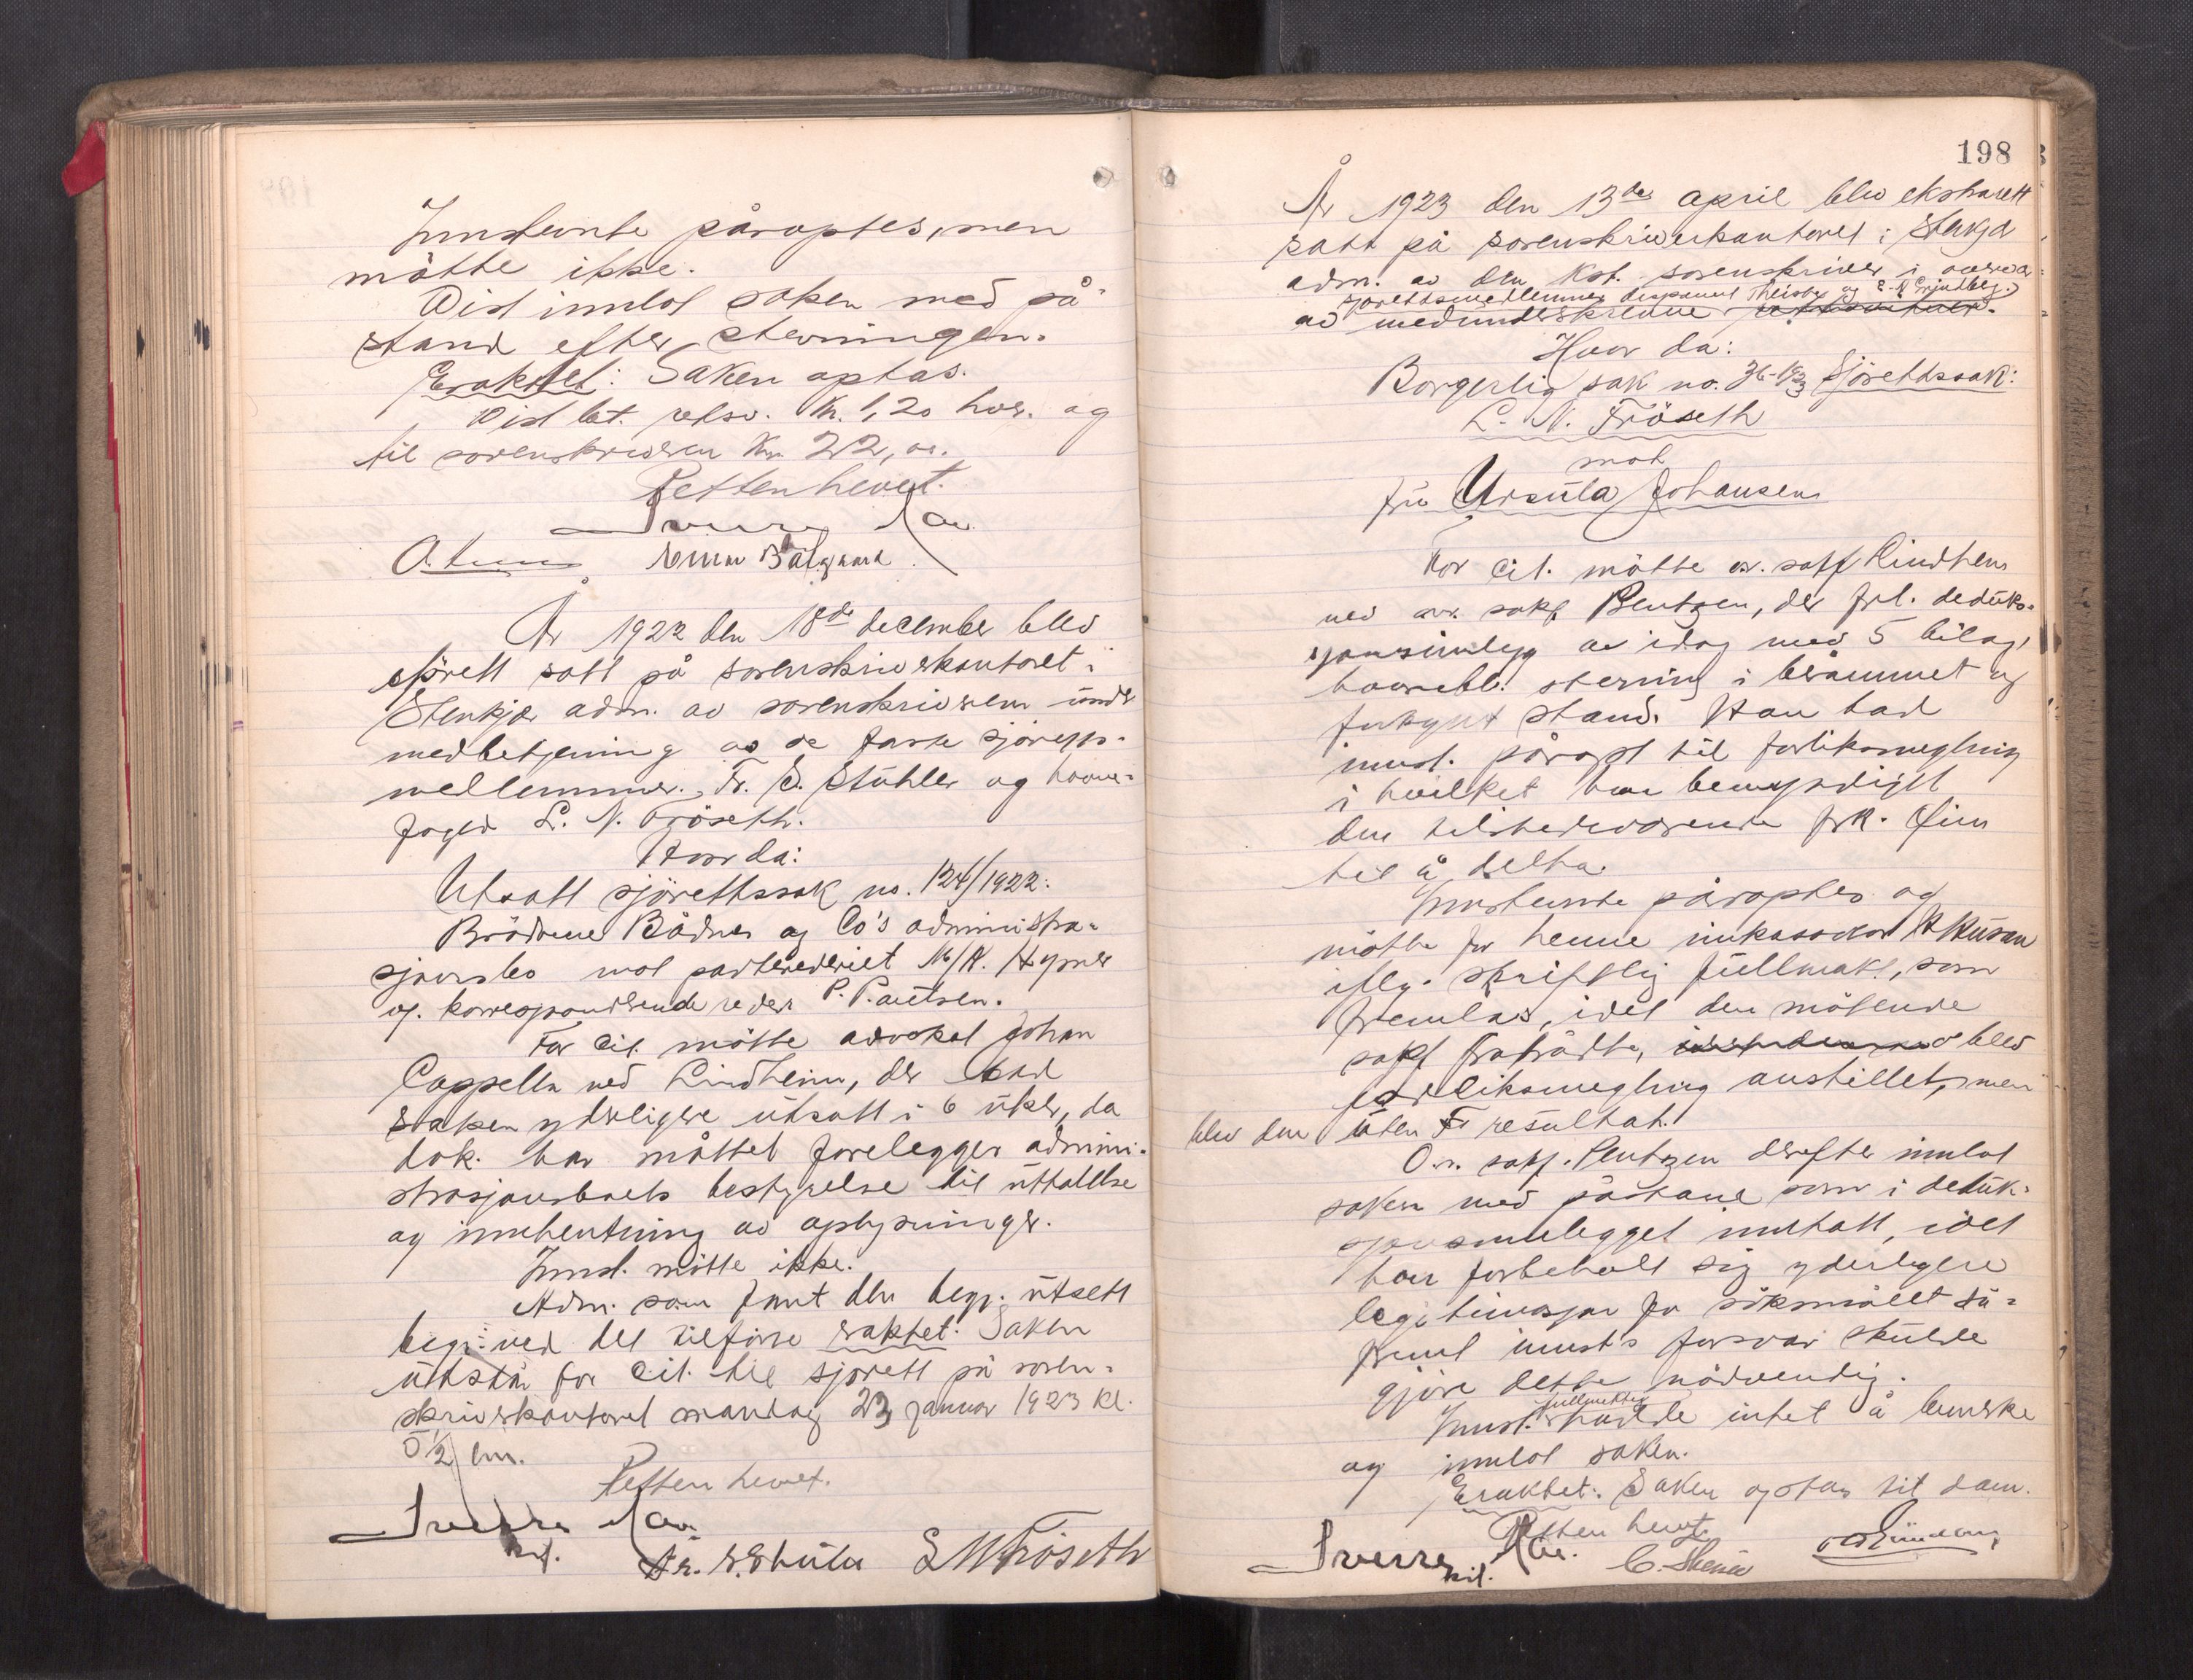 Innstevnte påroptes, men
møtte ikke.
Cit innlot saken med på-
stand efter stevningen.
Eraktet: Saken optas.
til sorenskriveren Kr. 22,00.
Retten hevet.
Sverre
År 1922 den 18de december blev
sjörett satt på sorenskriverkontoret i
Stenkjær adm. av sorenskriveren under
medbetjening av de faste sjöretts-
medlemmer. Fr. S. Stuhler og havne-
foged L. N. Fröseth.
Hvor da:
Utsatt sjörettssak no. 124/1922:
Brödrene Bådnes og Co's administra-
sjonsbo mot partrederiet M/K. Hypner
og korresponderende reder P. Paulsen.
For Cit. mötte advokat Johan
Cappelen ved Lindheim, der bad
saken yderligere utsatt i 6 uker, da
dok. har måttet forelegges admini-
strasjonsboets bestyrelse til uttalelse
og innhentning av oplysninger.
Innst. mötte ikke.
Adm. som fant den begj. utsett
begr. ved det tilförte eraktet: Saken
utstår for Cit. til sjörett på soren-
skriverkontoret mandag 23 januar 1923 kl.
5 1/2 em.
Retten hevet.
Sverre
kst.
L N Fröseth
198
År 1923 den 13de april blev ekstrarett
satt på sorenskriverkontoret i Stenkjær
adm. av den kst. sorenskriver i overvær
sjørettsmedlemmer disponent Theisen og
av medunderskrevne
Hvor da:
Borgerlig sak no. 36-1923 Sjørettssak:
L. N. Fröseth
mot
fru Ursula Johansen
For Cit. mötte o.r. sakf. Lindheim
ved o.r. sakf. Bentzen, der frl. deduk-
sjonsinnlegg av idag med 5 bilag,
hvoribl. stevning i beråmmet og
forkynt stand. Han bad
innst. påropt til forliksmegling
i hvilket han bemyndiget
den tilstedeværende frk. Öien
til å delta.
Innstevnte påroptes og
mötte for henne inkassator
iflg. skriftlig fullmakt, som
fremlas, idet den mötende
sakf. fratrådte, blev
forliksmegling anstillet, men
blev den uten resultat.
O.r. sakf. Bentzen derefter innlot
saken med påstand som i deduk-
sjonsinnlegget inntatt, idet
han forbeholt sig yderligere
legitimasjon for söksmålet så-
fremt innst's forsvar skulde
gjöre dette nödvendig.
fullmektig
Innst. hadde intet å bemerke
og innlot saken.
Eraktet: Saken optas til dom.
Retten hevet.
Sverre
kst.